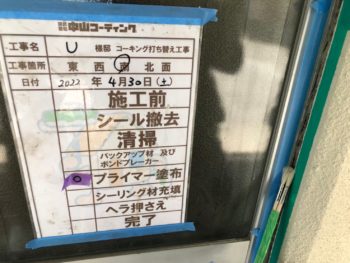 株式会社 中山コーティング
工事名 U 様邸 コーキング打ち替え工事
工事箇所 東 西 南 北面
日付 2022 年 4月30日(土)
施工前
シール撤去
清掃
バックアップ材 及び
ボンドブレーカー
○ プライマー塗布
シーリング材充填
ヘラ押さえ
完了